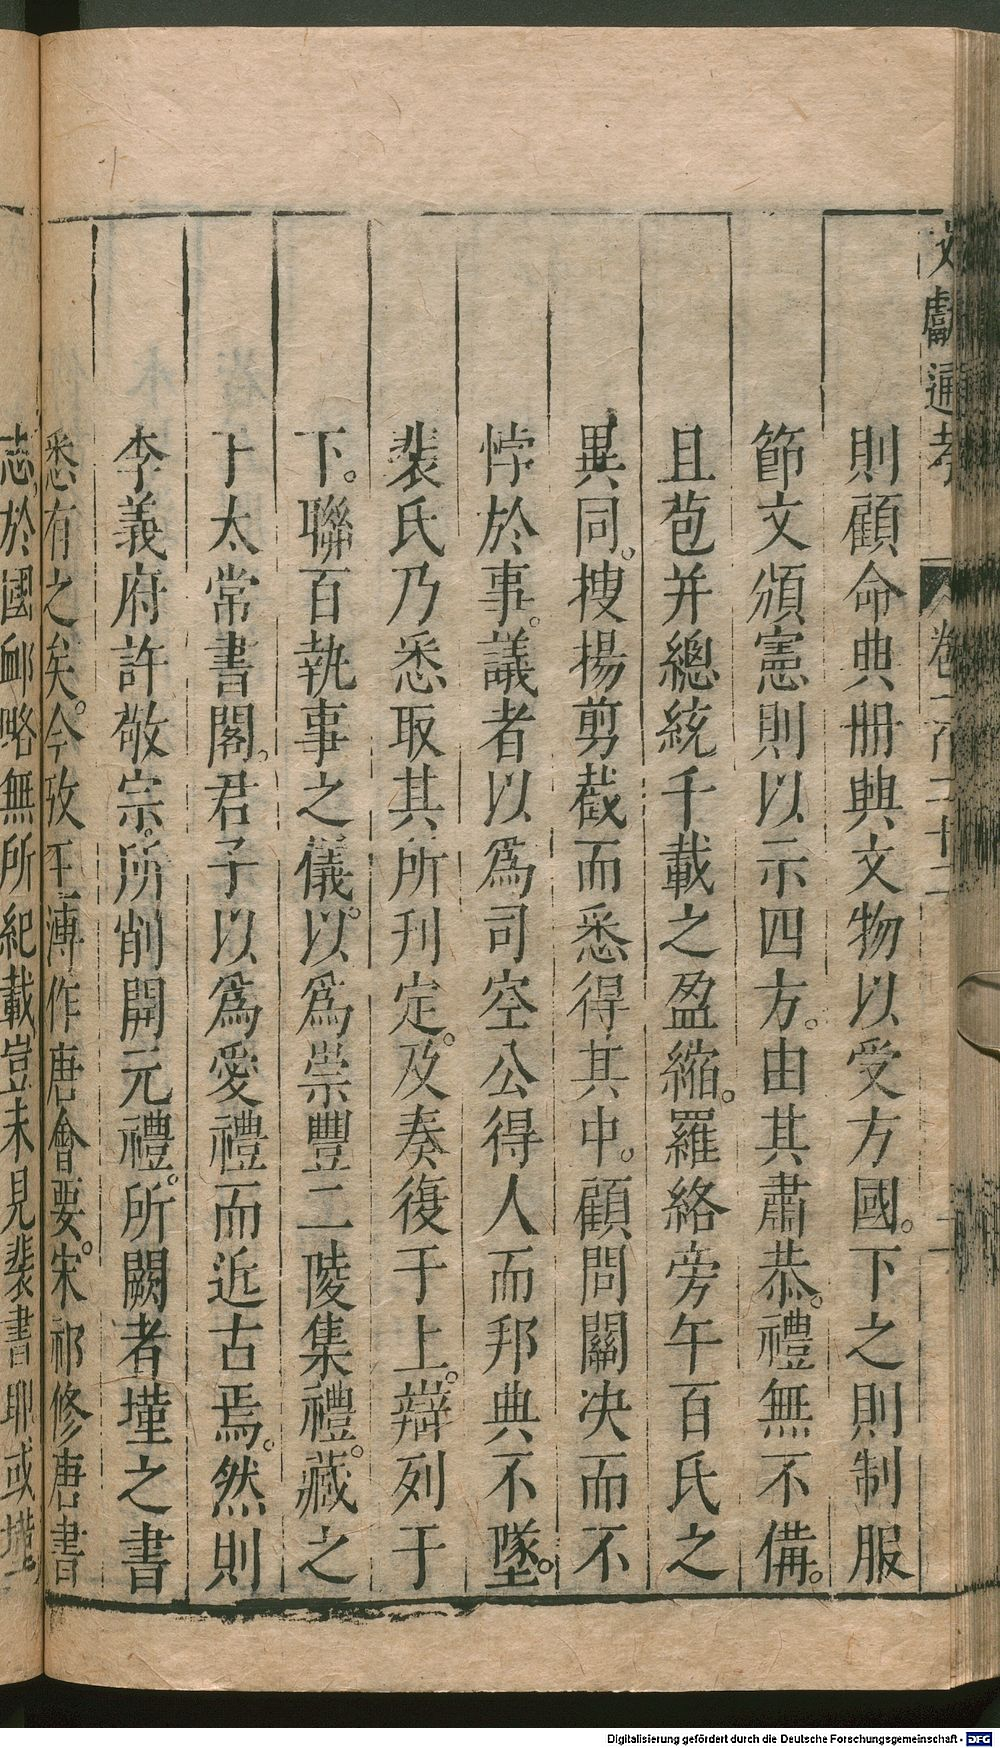 文獻通考
卷一百二十二
則顧命典冊典文物以受方國。下之則制服
節文頒憲則以示四方。由其肅恭。禮無不備。
且苞并總統千載之盈縮。羅絡旁午百氏之
異同。搜揚剪截而悉得其中。顧問關决而不
悖於事。議者以爲司空公得人而邦典不墜。
裴氏乃悉取其所刊定。及奏復于上。辯列于
下。聯百執事之儀。以爲崇豐二陵集禮。藏之
于太常書閣。君子以爲愛禮而近古焉。然則
李義府許敬宗。所削開元禮。所闕者墐之書
悉有之矣。今攷王溥作唐會要。宋祁修唐書
志。於國卹略無所紀載豈未見裴書耶或墐
Digitalisierung gefördert durch die Deutsche Forschungsgemeinschaft - DFG